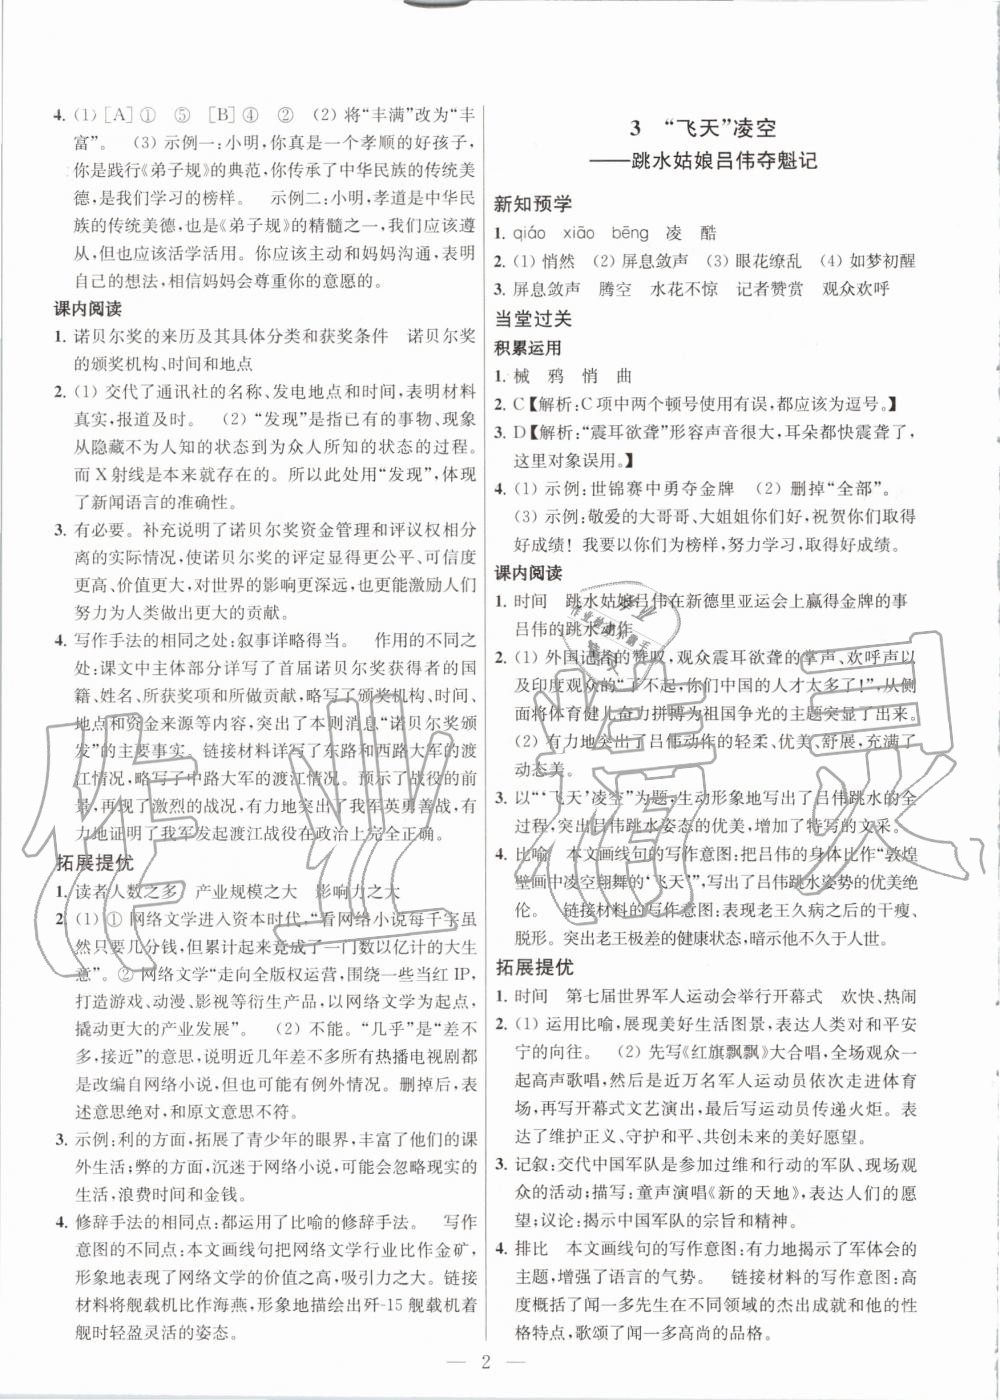 4. (1) [A]① ⑤ [B]④ ② (2) 将“丰满”改为“丰
富”。 (3) 示例一:小明,你真是一个孝顺的好孩子,
你是践行《弟子规》的典范,你传承了中华民族的传统美
德,是我们学习的榜样。 示例二:小明,孝道是中华民
族的传统美德,也是《弟子规》的精髓之一,我们应该遵
从,但应该活学活用。你应该主动和妈妈沟通,表明
自己的想法,相信妈妈会尊重你的意愿的。
课内阅读
1. 诺贝尔奖的来历及其具体分类和获奖条件 诺贝尔奖
的颁奖机构、时间和地点
2. (1) 交代了通讯社的名称、发电地点和时间,表明材料
真实,报道及时。 (2) “发现”是指已有的事物、现象
从隐藏不为人知的状态到为众人所知的状态的过程。
而X射线是本来就存在的。所以此处用“发现”,体现
了新闻语言的准确性。
3. 有必要。补充说明了诺贝尔奖资金管理和评议权相分
离的实际情况,使诺贝尔奖的评定显得更公平、可信度
更高、价值更大,对世界的影响更深远,也更能激励人们
努力为人类做出更大的贡献。
4. 写作手法的相同之处:叙事详略得当。 作用的不同之
处:课文中主体部分详写了首届诺贝尔奖获得者的国
籍、姓名、所获奖项和所做贡献,略写了颁奖机构、时间、
地点和资金来源等内容,突出了本则消息“诺贝尔奖颁
发”的主要事实。链接材料详写了东路和西路大军的渡
江情况,略写了中路大军的渡江情况。预示了战役的前
景,再现了激烈的战况,有力地突出了我军英勇善战,有
力地证明了我军发起渡江战役在政治上完全正确。
拓展提优
1. 读者人数之多 产业规模之大 影响力之大
2. (1) ① 网络文学进入资本时代,“看网络小说每千字虽
然只要几分钱,但累计起来竟成了一门数以亿计的大生
意”。② 网络文学“走向全版权运营,围绕一些当红IP,
打造游戏、动漫、影视等衍生产品,以网络文学为起点,
撬动更大的产业发展”。 (2) 不能。“几乎”是“差不
多,接近”的意思,说明近几年差不多所有热播电视剧都
是改编自网络小说,但也可能有例外情况。删掉后,表
述意思绝对,和原文意思不符。
3. 示例:利的方面,拓展了青少年的眼界,丰富了他们的课
外生活;弊的方面,沉迷于网络小说,可能会忽略现实的
生活,浪费时间和金钱。
4. 修辞手法的相同点:都运用了比喻的修辞手法。 写作
意图的不同点:本文画线句把网络文学行业比作金矿,
形象地表现了网络文学的价值之高,吸引力之大。链接
材料将舰载机比作海燕,形象地描绘出歼-15舰载机着
舰时轻盈灵活的姿态。
3 “飞天”凌空
——跳水姑娘吕伟夺魁记
新知预学
1. qiáo xiāo bēng 凌 酷
2. (1) 悄然 (2) 屏息敛声 (3) 眼花缭乱 (4) 如梦初醒
3. 屏息敛声 腾空 水花不惊 记者赞赏 观众欢呼
当堂过关
积累运用
1. 械 鸦 悄 曲
2. C【解析:C项中两个顿号使用有误,都应该为逗号。】
3. D【解析:“震耳欲聋”形容声音很大,耳朵都快震聋了,
这里对象误用。】
4. (1) 示例:世锦赛中勇夺金牌 (2) 删掉“全部”。
(3) 示例:敬爱的大哥哥、大姐姐你们好,祝贺你们取得
好成绩!我要以你们为榜样,努力学习,取得好成绩。
课内阅读
1. 时间 跳水姑娘吕伟在新德里亚运会上赢得金牌的事
吕伟的跳水动作
2. (1) 外国记者的赞叹,观众震耳欲聋的掌声、欢呼声以
及印度观众的“了不起,你们中国的人才太多了!”,从侧
面将体育健儿奋力拼搏为祖国争光的主题突显了出来。
(2) 有力地突出了吕伟动作的轻柔、优美、舒展,充满了
动态美。
3. 以“‘飞天’凌空”为题,生动形象地写出了吕伟跳水的全
过程,写出吕伟跳水姿态的优美,增加了特写的文采。
4. 比喻 本文画线句的写作意图:把吕伟的身体比作“敦煌
壁画中凌空翔舞的‘飞天’”,写出了吕伟跳水姿势的优美绝
伦。 链接材料的写作意图:写出了老王久病之后的干瘦、
脱形。突出老王极差的健康状态,暗示他不久于人世。
拓展提优
1. 时间 第七届世界军人运动会举行开幕式 欢快、热闹
2. (1) 运用比喻,展现美好生活图景,表达人类对和平安
宁的向往。 (2) 先写《红旗飘飘》大合唱,全场观众一
起高声歌唱,然后是近万名军人运动员依次走进体育
场,再写开幕式文艺演出,最后写运动员传递火炬。表
达了维护正义、守护和平、共创未来的美好愿望。
3. 记叙:交代中国军队是参加过维和行动的军队、现场观
众的活动;描写:童声演唱《新的天地》,表达军人的愿
望;议论:揭示出中国军队的宗旨和精神。
4. 排比 本文画线句的写作意图:有力地揭示了军体会的
主题,增强了语言的气势。 链接材料的写作意图:高
度概括了闻一多先生在不同领域的杰出成就和他的性
格特点,歌颂了闻一多高尚的品格。
— 2 —
作业精灵